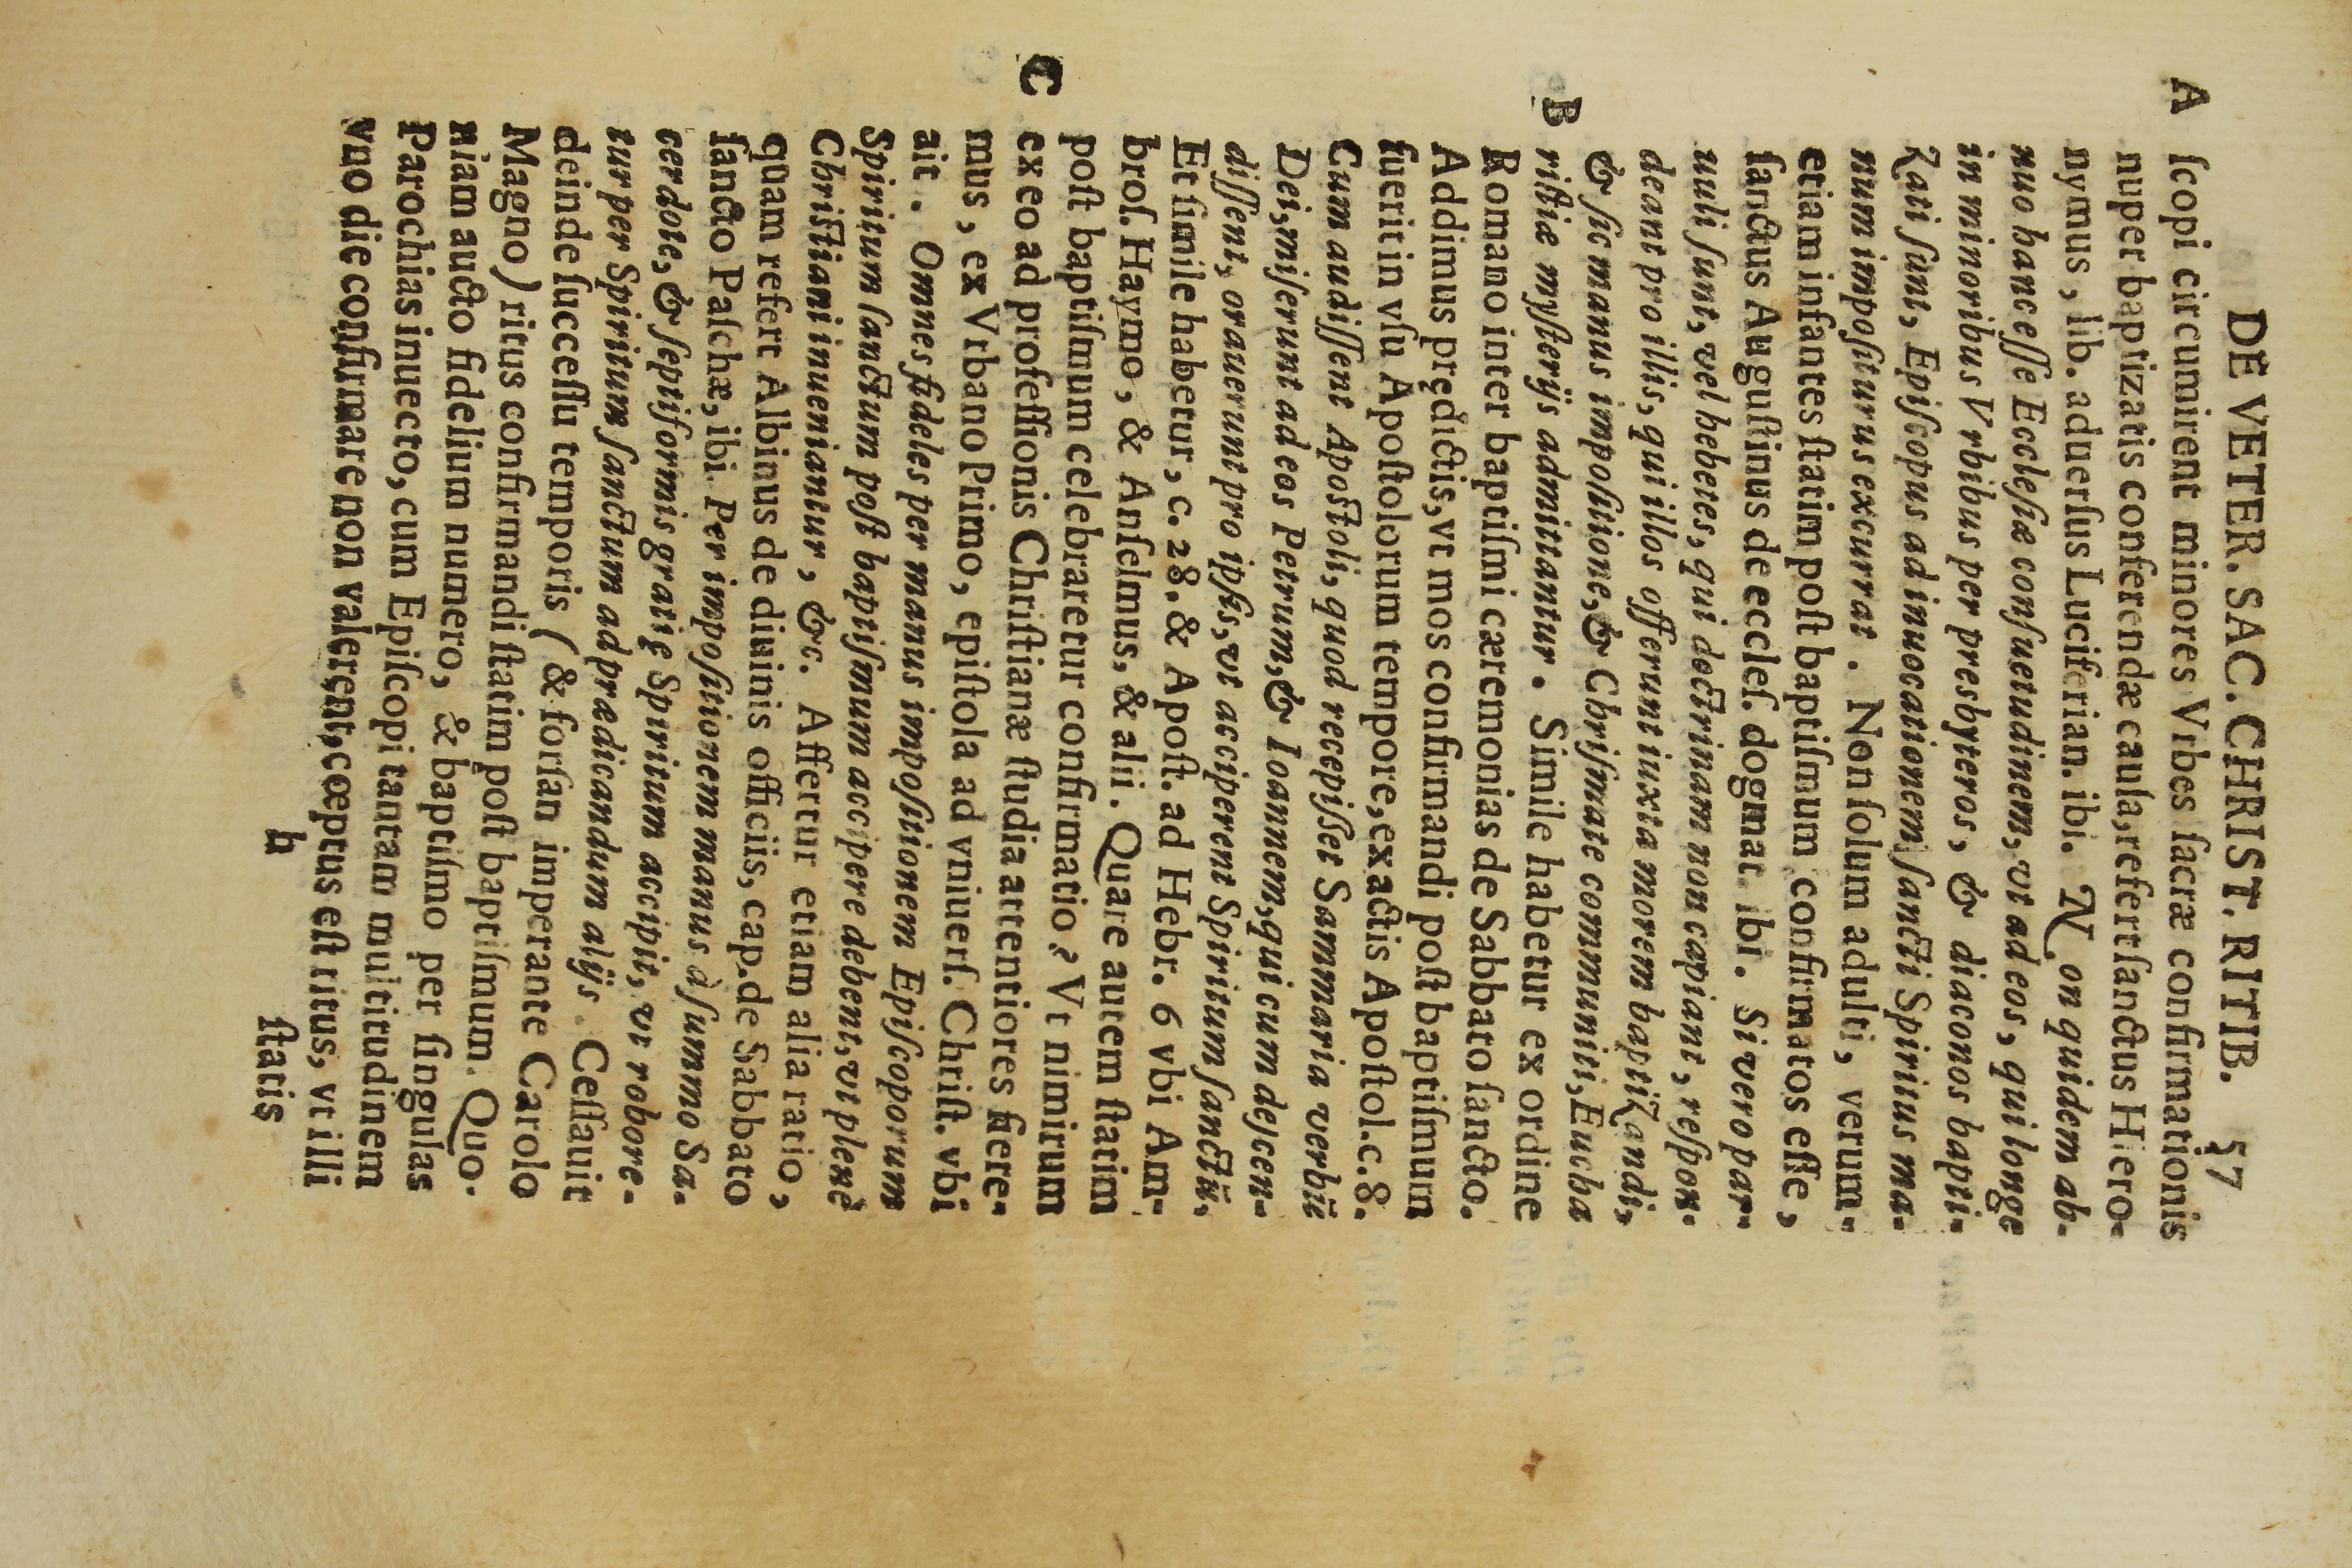 DE VETER. SAC. CHRIST. RITIB. 57
A ſcopi circumirent minores Vrbes ſacræ confirmationis
nuper baptizatis conferendæ cauſa, refert ſanctus Hiero-
nymus, lib. aduerſus Luciferian. ibi. Non quidem ab-
nuo hanc eſſe Eccleſiæ conſuetudinem, vt ad eos, qui longe
in minoribus Vrbibus per presbyteros, & diaconos bapti-
zati ſunt, Epiſcopus ad inuocationem ſancti Spiritus ma-
num impoſiturus excurrat. Non ſolum adulti, verum-
etiam infantes ſtatim poſt baptiſmum confirmatos eſſe,
ſanctus Auguſtinus de eccleſ. dogmat. ibi. Si vero par-
uuli ſunt, vel hebetes, qui doctrinam non capiant, reſpon-
deant pro illis, qui illos offerunt iuxta morem baptizandi,
& ſic manus impoſitione, & Chriſmate communiti, Eucha
B riſtiæ myſterijs admittantur. Simile habetur ex ordine
Romano inter baptiſmi cæremonias de Sabbato ſancto.
Addimus prędictis, vt mos confirmandi poſt baptiſmum
fuerit in vſu Apoſtolorum tempore, ex actis Apoſtol. c. 8.
Cum audiſſent Apoſtoli, quod recepiſſet Sammaria verbū
Dei, miſerunt ad eos Petrum, & Ioannem, qui cum deſcen-
diſſent, orauerunt pro ipſis, vt acciperent Spiritum ſanctū.
Et ſimile habetur, c. 28. & Apoſt. ad Hebr. 6 vbi Am-
broſ. Haymo, & Anſelmus, & alii. Quare autem ſtatim
poſt baptiſmum celebraretur confirmatio? Vt nimirum
C ex eo ad profeſſionis Chriſtianæ ſtudia attentiores fiere-
mus, ex Vrbano Primo, epiſtola ad vniuerſ. Chriſt. vbi
ait. Omnes fideles per manus impoſitionem Epiſcoporum
Spiritum ſanctum poſt baptiſmum accipere debent, vt plenè
Chriſtiani inueniantur, &c. Affertur etiam alia ratio,
quam refert Albinus de diuinis officiis, cap. de Sabbato
ſancto Paſchæ, ibi. Per impoſitionem manus à ſummo Sa-
cerdote, & ſeptiformis gratię Spiritum accipit, vt robore-
tur per Spiritum ſanctum ad prædicandum alijs. Ceſſauit
deinde ſucceſſu temporis (& forſan imperante Carolo
Magno) ritus confirmandi ſtatim poſt baptiſmum. Quo-
niam aucto fidelium numero, & baptiſmo per ſingulas
Parochias inuecto, cum Epiſcopi tantam multitudinem
vno die confirmare non valerent, cœptus eſt ritus, vt illi
h ſtatis